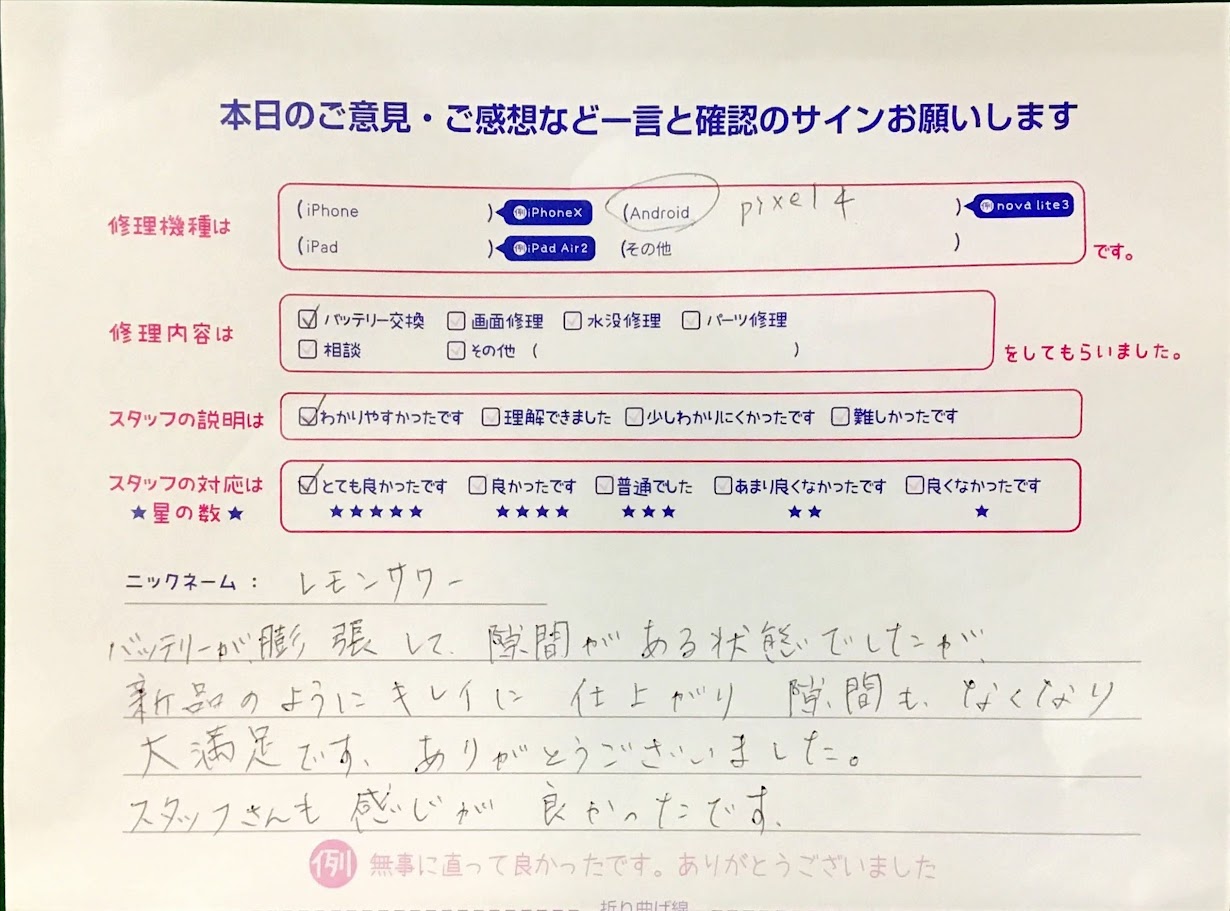 本日のご意見・ご感想など一言と確認のサインお願いします
修理機種は
(iPhone )例iPhoneX (Android pixel 4 )例nova lite3
(iPad )例iPad Air2 (その他 )
です。
修理内容は
バッテリー交換 画面修理 水没修理 パーツ修理
相談 その他 ( )
をしてもらいました。
スタッフの説明は
わかりやすかったです 理解できました 少しわかりにくかったです 難しかったです
スタッフの対応は
★星の数★
とても良かったです 良かったです 普通でした あまり良くなかったです 良くなかったです
★★★★★ ★★★★ ★★★ ★★ ★
ニックネーム: レモンサワー
バッテリーが、膨張して、隙間がある状態でしたが、
新品のようにキレイに 仕上がり 隙間も、なくなり
大満足です、ありがとうございました。
スタッフさんも 感じが 良かったです。
例 無事に直って良かったです。ありがとうございました
折り曲げ線